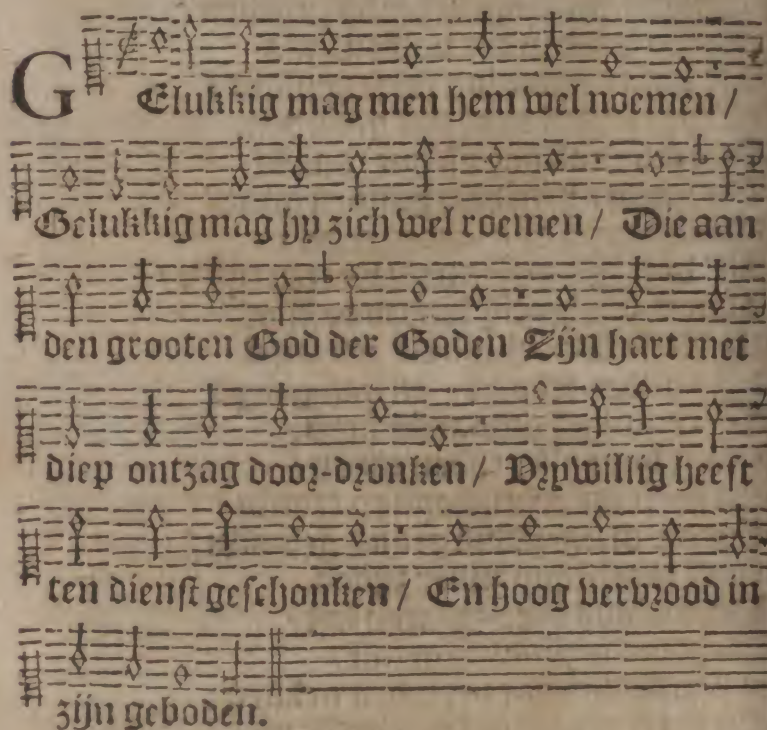 GElukkig mag men hem wel noemen /
Gelukkig mag hy zich wel roemen / Die aan
den grooten God der Goden Zijn hart met
diep ontzag door-dronken / Vrywillig heeft
ten dienst geschonken / En hoog vervrood in
zijn geboden.